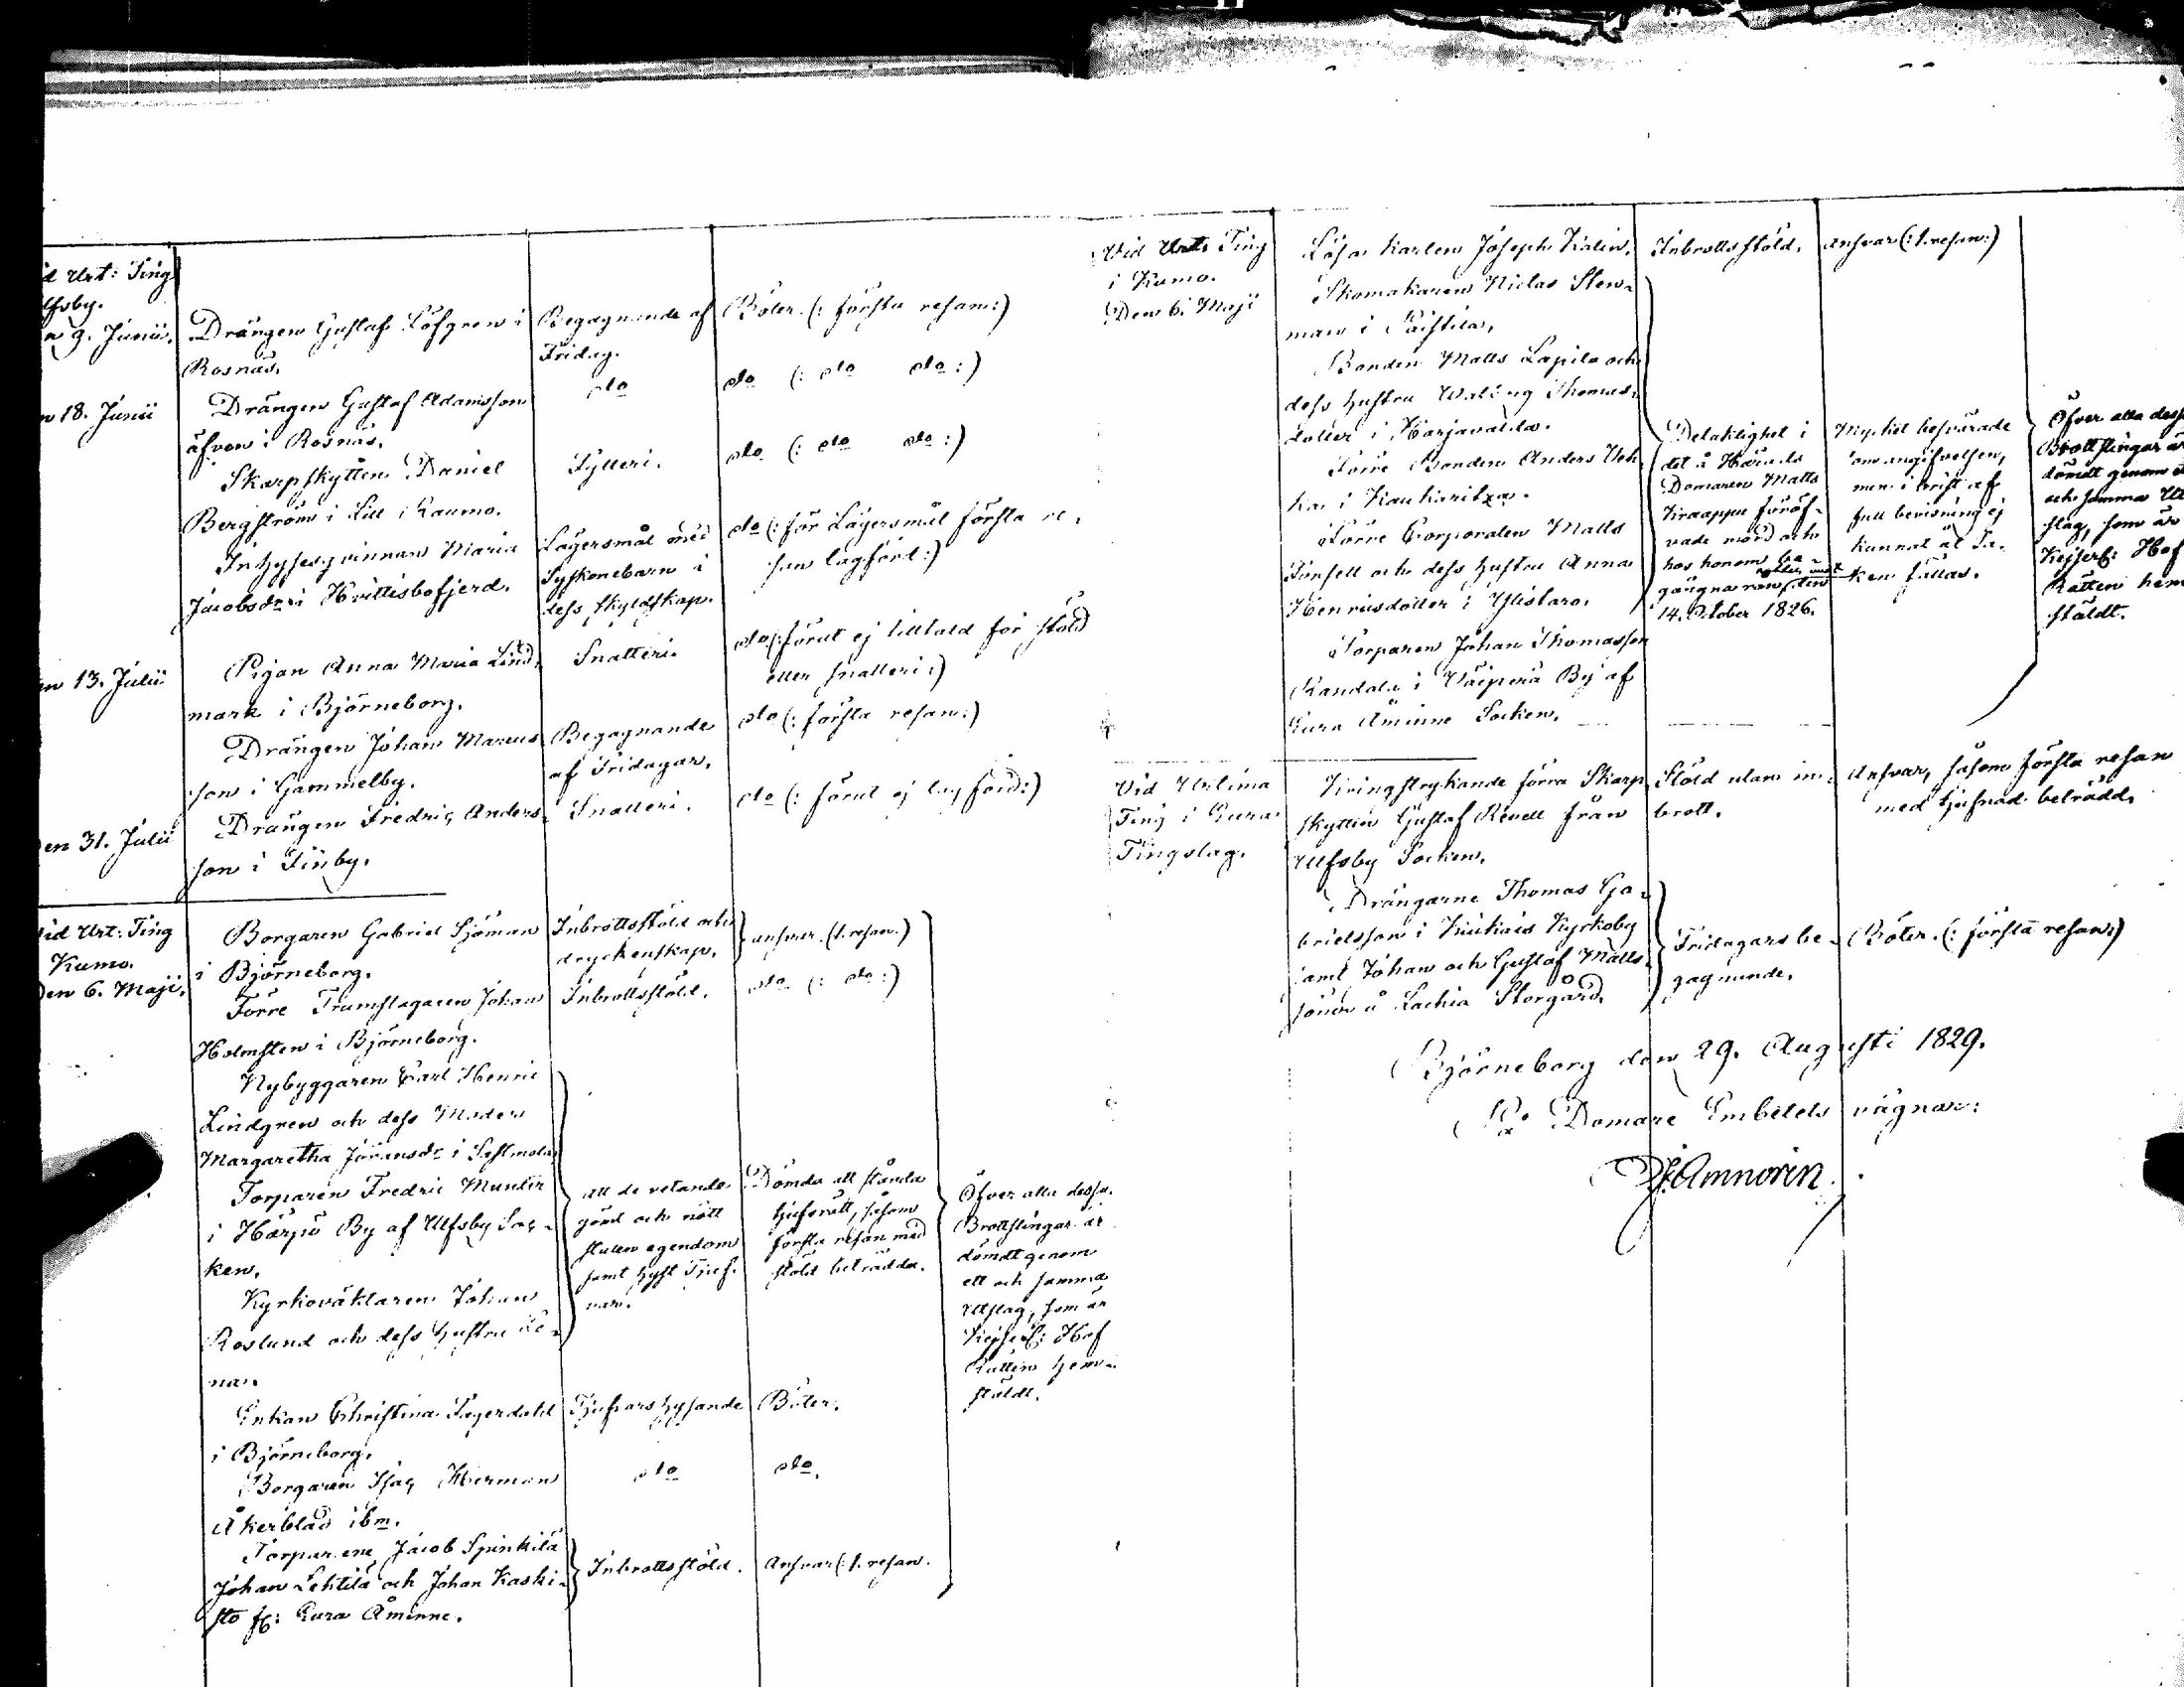 Vid Urt: Ting
Ulfsby.
9. Junii.
Drängen Gustaf Löfgren i
Rosnäs.
Begagnande af
Fridag.
Böter. (: första resan:)
18. Junii
Drängen Gustaf Adamsson
äfven i Rosnäs.
do
do (: do do :)
Skarpskytten Daniel
Bergström i Lill Raumo.
Fylleri.
do (: do do :)
Inhysesqvinnan Maria
Jacobsdr i Hvittisbofjerd.
Lägersmål med
Syskonebarn i
dess skyldskap.
do (: för Lägersmål första re-
san lagförd:)
13. Julii
Pigan Anna Maria Lind-
mark i Björneborg.
Snatteri.
do (: förut ej tilltald för stöld
eller snatteri:)
Drängen Johan Marcus
son i Gammelby.
Begagnande
af Fridagar.
do (: första resan:)
den 31. Julii
Drängen Fredric Anders-
son i Finby.
Snatteri.
do (: förut ej lagförd:)
Vid Urt: Ting
Kumo.
Den 6. Maji.
Borgaren Gabriel Sjöman
i Björneborg.
Inbrottsstöld och
dryckenskap.
ansvar. (1. resan.)
Förre Trumslagaren Johan
Holmsten i Björneborg.
Inbrottsstöld.
do (: do :)
Nybyggaren Carl Henric
Lindgren och dess Moder
Margaretha Jöransdr i Sastmola
Torparen Fredric Munter
i Harju By af Ulfsby Soc-
ken.
Kyrkoväktaren Johan
Roslund och dess hustru Le-
na.
att de vetande
gömt och nött
stulen egendom
samt hyst Tjuf-
var.
Dömda att stånda
tjufsrätt, såsom
första resan med
stöld beträdda.
Öfver alla dessa
Brottslingar är
dömdt genom
ett och samma
Utslag, som är
Kejserl: Hof
Rätten hem-
stäldt.
Enkan Christina Fagerdahl
i Björneborg.
Tjufvars hysande
Böter.
Borgaren Isac Herman
Åkerblad ibm.
do
do.
Torparene Jacob Spinkilä
Johan Lehtilä och Johan Kaski-
sto fr: Eura Åminne.
Inbrottsstöld.
Ansvar (: 1. resan.
Vid Urt. Ting
i Kumo.
Den 6. Maji
Lösa karlen Joseph Kalin.
Inbrottsstöld.
ansvar (: 1. resan:)
Skomakaren Niclas Sten-
man i Paistila.
Bonden Matts Lapila och
dess hustru Walborg Thomas-
dotter i Harjavalda.
Förre Bonden Anders Uch
ka i Kaukaritza.
Förre Corporalen Matts
Finfelt och dess hustru Anna
Henricsdotter i Ylistaro.
Torparen Johan Thomasson
Randala i Väiperä By af
Eura Åminne Socken.
Delaktighet i
det å Härads
Domaren Matts
Knaappu föröf-
vade mord och
hos honom be-
gångna rån, natten emot den
14. October 1826.
Mycket besvärade
om angifvelsen,
men i brist af
full bevisning ej
kunnat åt Sa-
ken fällas.
Öfver alla dess
Brottslingar är
dömdt genom
och samma Ut
slag, som är
Kejserl: Hof
Rätten hem
stäldt.
Vid Urtima
Ting i Eura
Tingslag.
Kringstrykande förra Skarp
skytten Gustaf Revell från
Ulfsby Socken.
Stöld utan in-
brott.
Ansvar, såsom första resan
med tjufnad beträdd.
Drängarne Thomas Ga-
brielsson i Kiukais Kyrkoby
samt Johan och Gustaf Matts-
söner å Lachia Storgård.
Fridagars be-
gagnande.
Böter. (: första resan:)
Björneborg den 29. Augusti 1829.
På Domare Embetets vägnar: